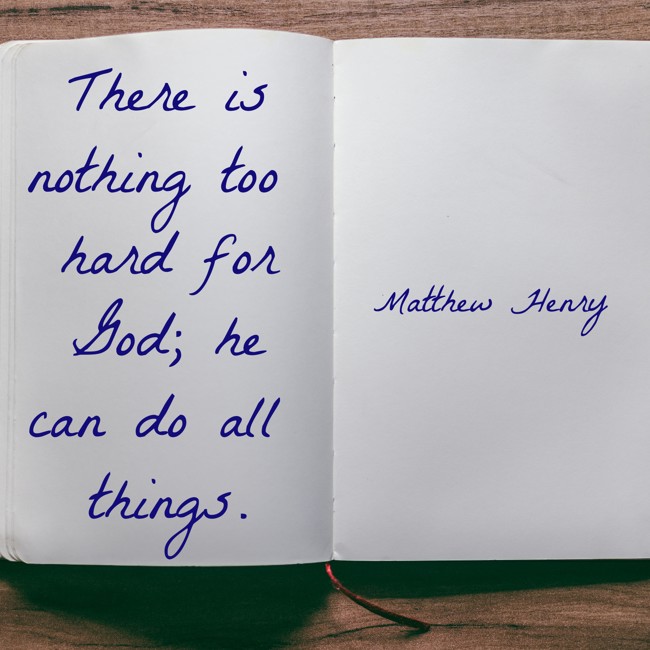 There is
nothing too
hard for
God; he
can do all
things.
Matthew Henry